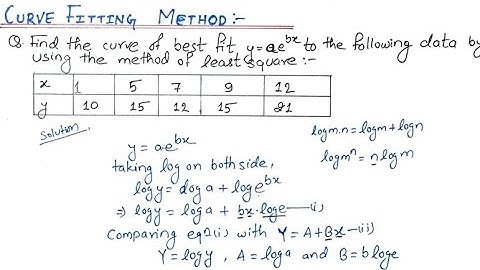 CURVE FITTING METHOD:-
Q. Find the curve of best fit y=ae^{bx} to the following data by
using the method of least square:-
x 1 5 7 9 12
y 10 15 12 15 21
Solution,
y = ae^{bx}
taking log on both side,
logy = loga + loge^{bx}
⇒ logy = loga + bx·loge —(i)
Comparing eqn(i) with Y = A+Bx —(ii)
Y = logy , A = loga and B = b loge
logm.n = logm + logn
logm^n = nlogm